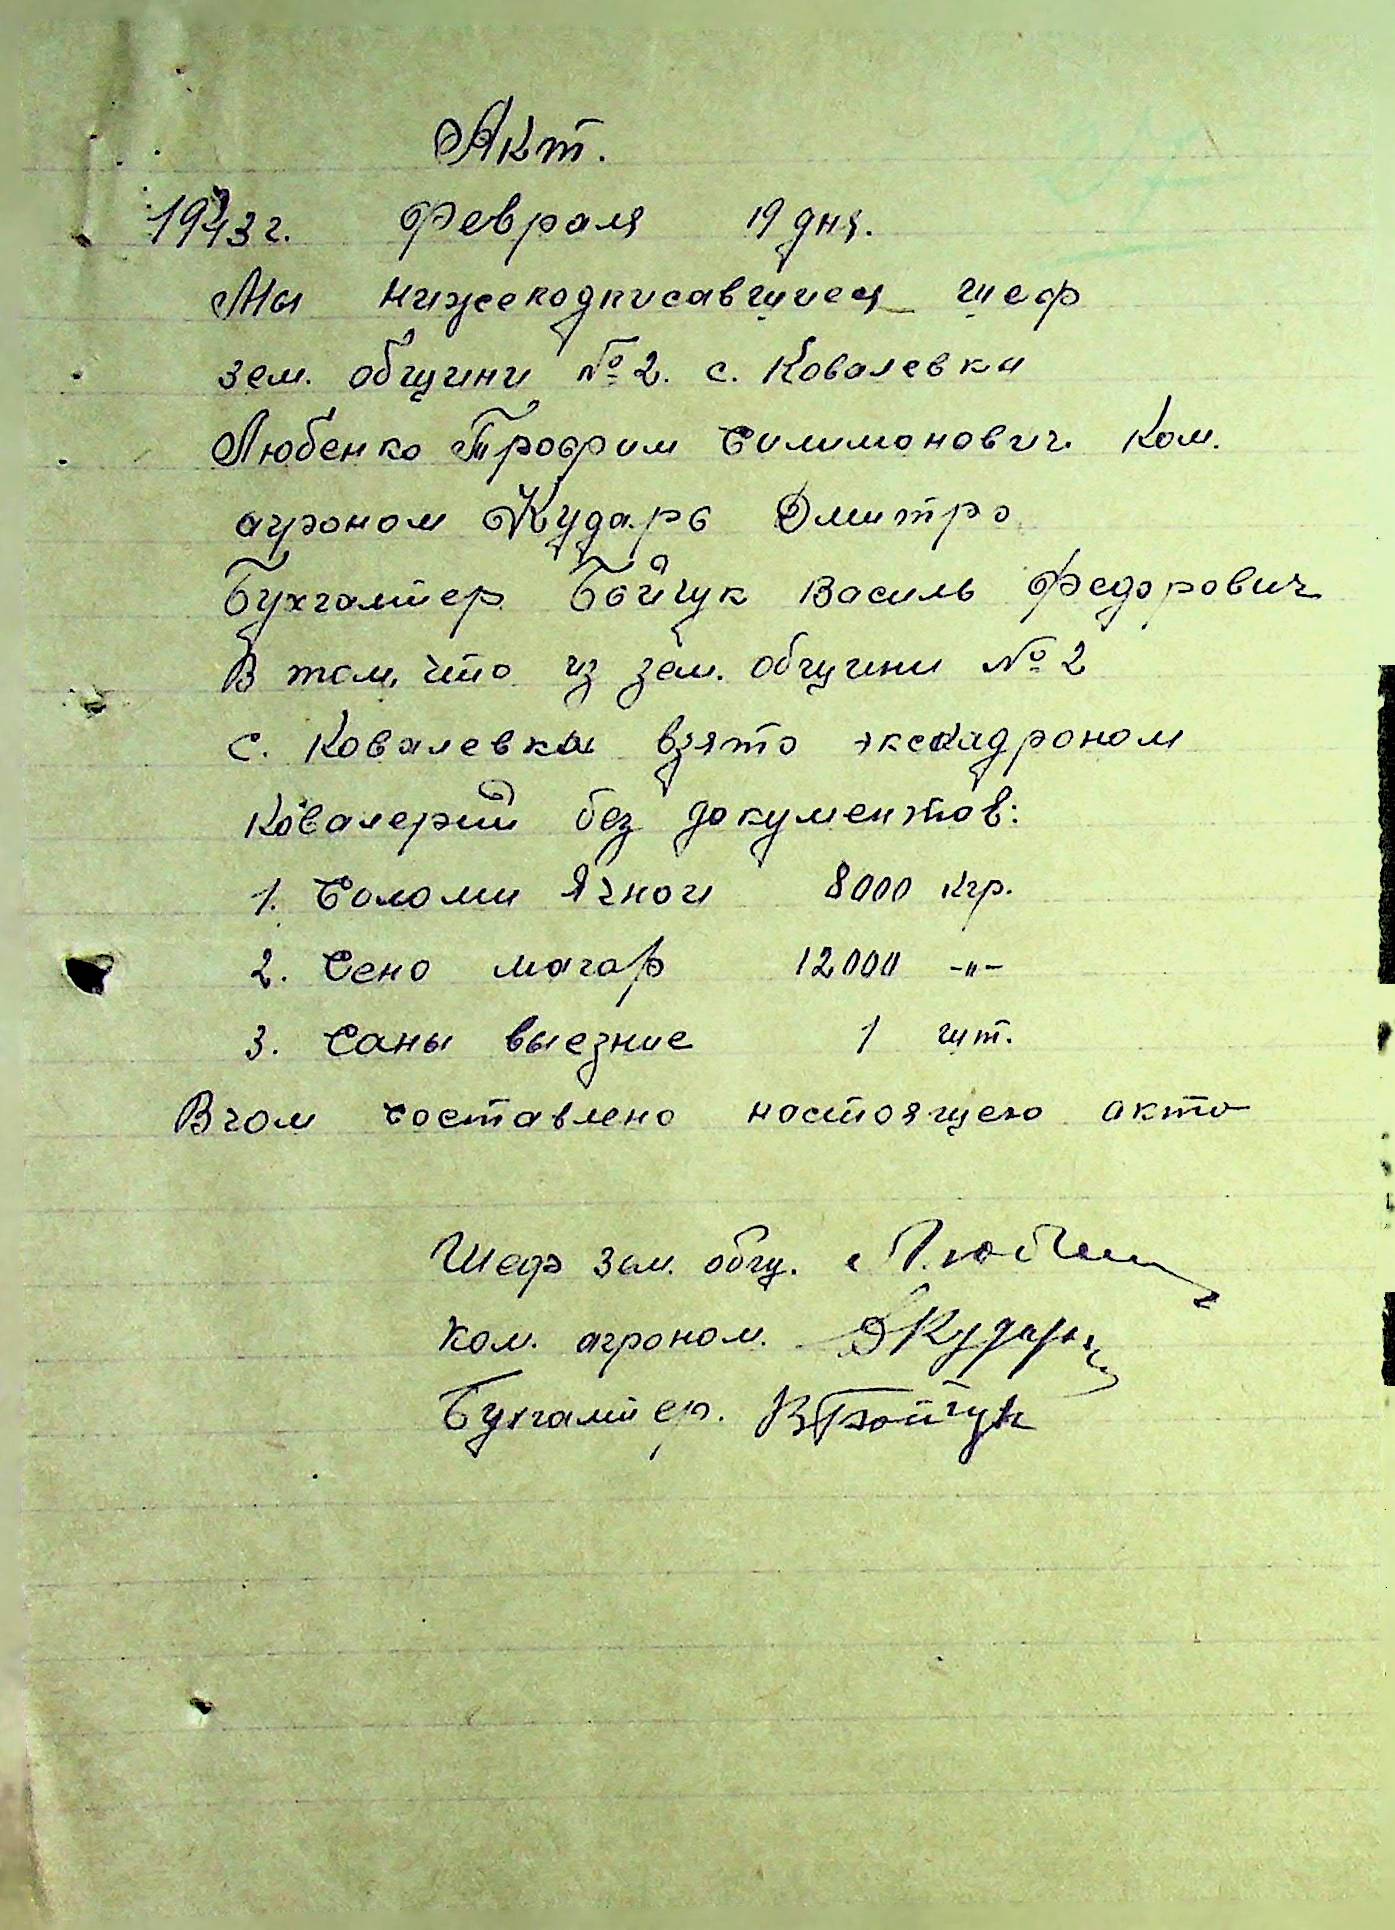 Акт.
1943 г. Февраля 19 дня.
Мы нижеподписавшиеся шеф
зем. общини № 2. с. Ковалевки
Любенко Трофим Силимонович. Ком.
агроном Кударь Дмитро
Бухгалтер Бойчук Василь Федорович
В том, что из зем. общини № 2
с. Ковалевки взято экскадроном
Ковалерий без документов:
1. Соломи Ячной 8000 кгр.
2. Сено могар 12000 -"-
3. Саны выезние 1 шт.
В чом составлено настоящею акто
Шеф зем. общ.
Ком. агроном. ДКударь
Бухгалтер. ВБойчук